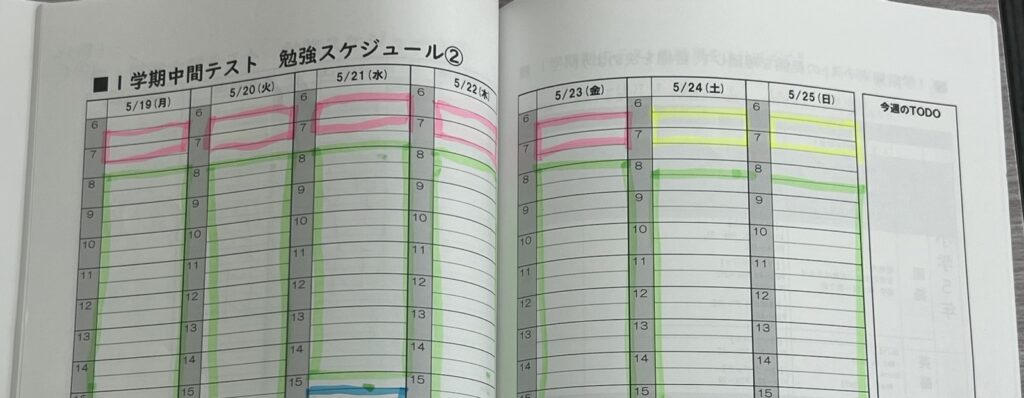 ■1学期中間テスト 勉強スケジュール②
5/19(月) 5/20(火) 5/21(水) 5/22(木) 5/23(金) 5/24(土) 5/25(日) 今週のTODO
6 6 6 6 6 6 6
7 7 7 7 7 7 7
8 8 8 8 8 8 8
9 9 9 9 9 9 9
10 10 10 10 10 10 10
11 11 11 11 11 11 11
12 12 12 12 12 12 12
13 13 13 13 13 13 13
14 14 14 14 14 14 14
15 15 15 15 15